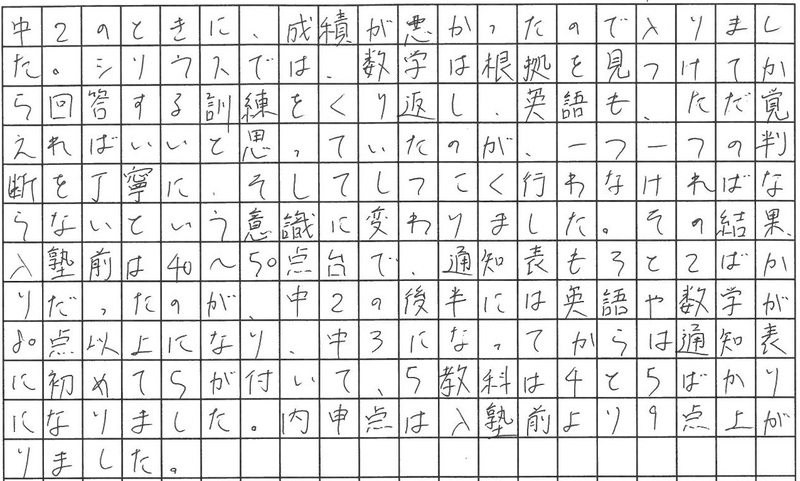 中2のときに、成積が悪かったので入りまし
た。シリウスでは、数学は根拠を見つけてか
ら回答する訓練をくり返し、英語も、ただ覚
えればいいと思っていたのが、一つ一つの判
断を丁寧に、そしてしつこく行わなければな
らないという意識に変わりました。その結果、
入塾前は40～50点台で、通知表も3と2ばか
りだったのが、中2の後半には英語や数学が
80点以上になり、中3になってからは通知表
に初めて5が付いて、5教科は4と5ばかり
になりました。内申点は入塾前より9点上が
りました。